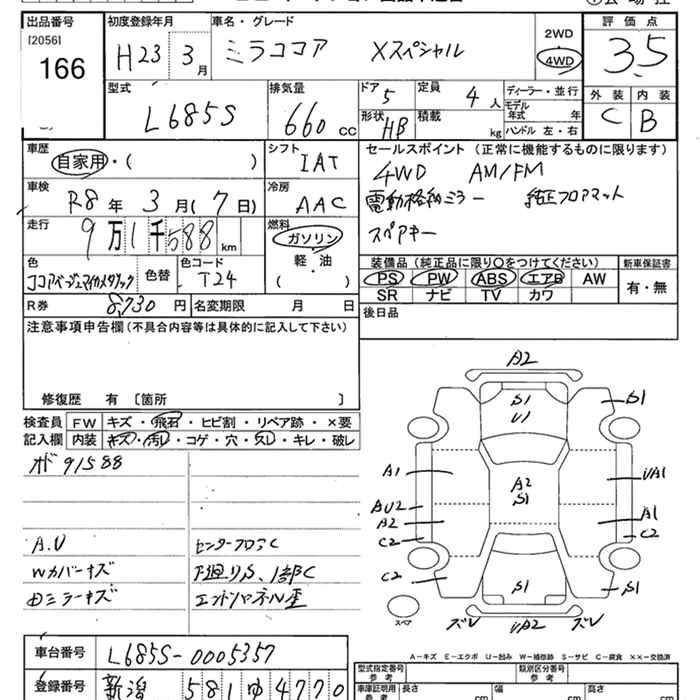 出品番号 初度登録年月 車名・グレード 評価点
[2056] 166 H23年 3月 ミラココア Xスペシャル 2WD 4WD 3.5
型式 排気量 ドア 5 定員 4人 ディーラー・並行 外装 内装
L685S 660cc 形状 HB 積載 kg モデル年式 年 C B
ハンドル 左・右
車歴 シフト セールスポイント (正常に機能するものに限ります)
自家用・( ) IAT 4WD AM/FM
車検 R8年 3月(7日) 冷房 AAC 電動格納ミラー 純正フロアマット
走行 9万1千588km 燃料 ガソリン スペアキー
軽・油
( )
色 色替 色コード 装備品 (純正品に限り○をつけてください) 新車保証書
ココアベージュマイカメタリック T24 PS PW ABS エアB AW 有・無
R券 8,730円 名変期限 月 日 SR ナビ TV カワ
注意事項申告欄(不具合内容等は具体的に記入して下さい) 後日品
修復歴 有 [箇所 ]
検査員 FW キズ・飛石・ヒビ割・リペア跡・×要
記入欄 内装 キズ・汚レ・コゲ・穴・スレ・キレ・破レ
91588
A.U センターフロアC
Wカバーキズ 下廻りS、1部C
Dミラーキズ エンドパネル歪
A2
S1 S1
U1
A1 A2 UA1
S1
AU2 A1
A2 C2
C2
C2 S1 S1
スペア ズレ UA2 ズレ
A-キズ E-エクボ U-凹み W-補修跡 S-サビ C-腐食 ××-交換済
車台番号 L685S-0005357
型式指定番号 類別区分番号
参考
登録番号 新潟 581 ゆ 4770
車庫証明用 長さ 幅 高さ
参考 cm cm cm